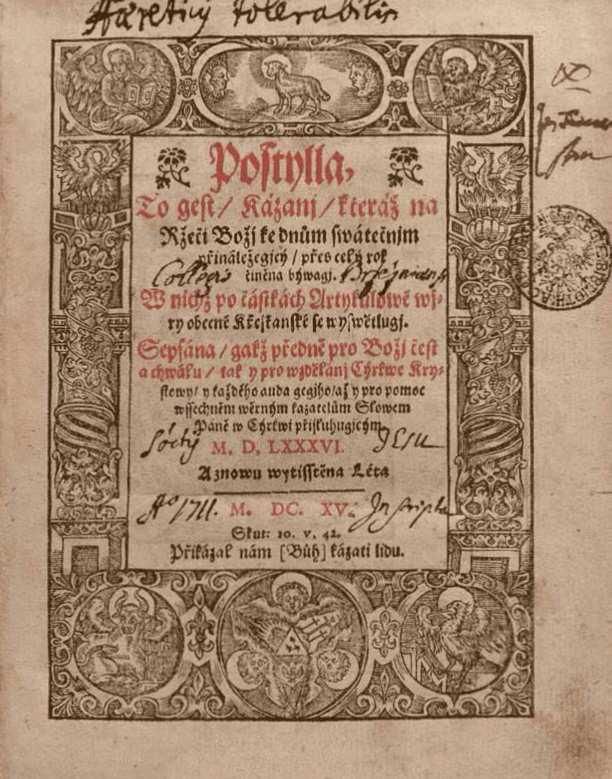 Haeretici tolerabilis
Postylla,
To gest/ Kázanj/ kteráž na
Ržeči Božj ke dnům swátečnjm
přináležegjcý/ přes celý rok
činěna býwagj.
Collegÿ
W nichž po částkách Artykulowé wj-
ry obecné Křesťanské se wyswětlugj.
Sepsána/ gakž předně pro Božj čest
a chwálu/ tak y pro wzdělánj Cýrkwe Kry-
stowy/ y každého auda gegjho/ až y pro pomoc
wssechněm wěrným kazatelům Slowem
Páně w Cýrkwi přisluhugjcým
Socty Jesu
M. D. LXXXVI.
A znowu wytisstěna Léta
M. DC. XV.
Aº 1711. Inscript
Skut: 10. v. 42.
Přikázal nám [Bůh] kázati lidu.